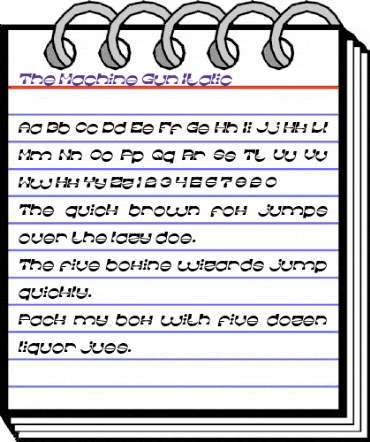 The Machine Gun Italic
Aa Bb Cc Dd Ee Ff Gg Hh Ii Jj Kk Ll
Mm Nn Oo Pp Qq Rr Ss Tt Uu Vv
Ww Xx Yy Zz 1 2 3 4 5 6 7 8 9 0
The quick brown fox jumps
over the lazy dog.
The five boxing wizards jump
quickly.
Pack my box with five dozen
liquor jugs.